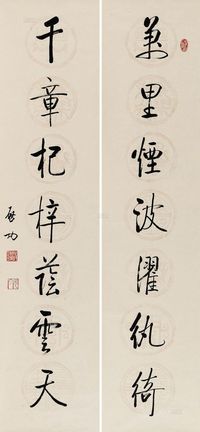 万里煙波濯紈綺
千章杞梓蔭雲天
启功